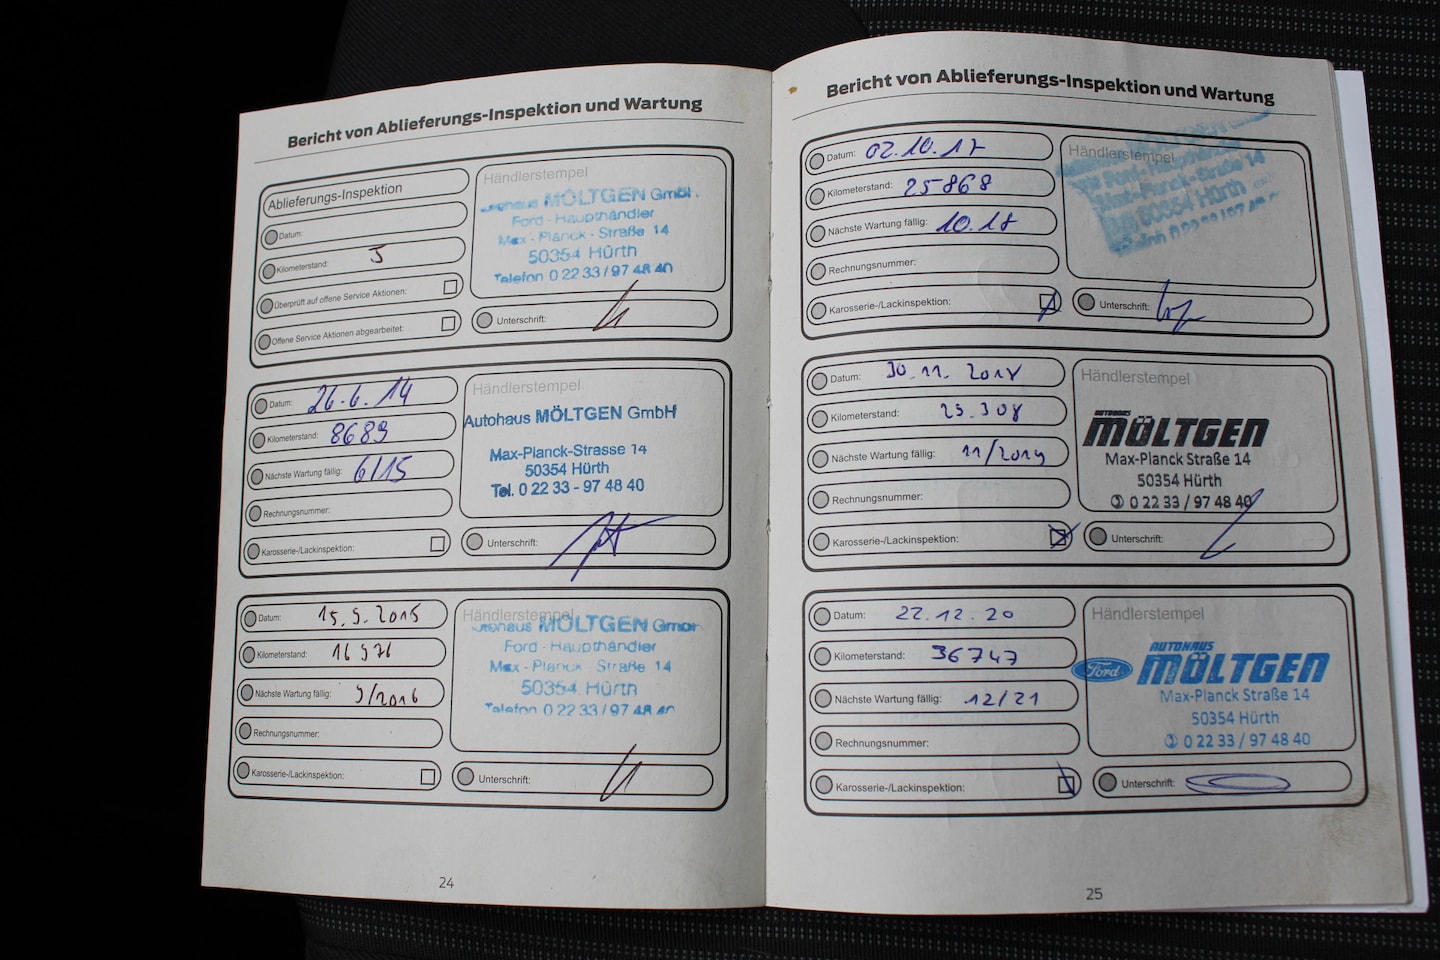 Bericht von Ablieferungs-Inspektion und Wartung
Ablieferungs-Inspektion
Datum:
Kilometerstand: 5
Überprüft auf offene Service Aktionen:
Offene Service Aktionen abgearbeitet:
Händlerstempel
MÖLTGEN GmbH
Ford - Haupthändler
Max - Planck - Straße 14
50354 Hürth
Telefon 0 22 33 / 97 48 40
Unterschrift:
Datum: 26.6.14
Kilometerstand: 8689
Nächste Wartung fällig: 6/15
Rechnungsnummer:
Karosserie-/Lackinspektion:
Händlerstempel
Autohaus MÖLTGEN GmbH
Max-Planck-Strasse 14
50354 Hürth
Tel. 0 22 33 - 97 48 40
Unterschrift:
Datum: 15.9.2015
Kilometerstand: 16976
Nächste Wartung fällig: 9/2016
Rechnungsnummer:
Karosserie-/Lackinspektion:
Händlerstempel
MÖLTGEN GmbH
Ford - Haupthändler
Max - Planck - Straße 14
50354 Hürth
Telefon 0 22 33 / 97 48 40
Unterschrift:
24
Bericht von Ablieferungs-Inspektion und Wartung
Datum: 02.10.17
Kilometerstand: 25868
Nächste Wartung fällig: 10.18
Rechnungsnummer:
Karosserie-/Lackinspektion:
Händlerstempel
Max-Planck-Straße 14
50354 Hürth
Unterschrift:
Datum: 30.11.2018
Kilometerstand:
Nächste Wartung fällig: 11/2019
Rechnungsnummer:
Karosserie-/Lackinspektion:
Händlerstempel
AUTOHAUS
MÖLTGEN
Max-Planck Straße 14
50354 Hürth
✆ 0 22 33 / 97 48 40
Unterschrift:
Datum: 22.12.20
Kilometerstand: 36747
Nächste Wartung fällig: 12/21
Rechnungsnummer:
Karosserie-/Lackinspektion:
Händlerstempel
Ford
AUTOHAUS
MÖLTGEN
Max-Planck Straße 14
50354 Hürth
✆ 0 22 33 / 97 48 40
Unterschrift:
25